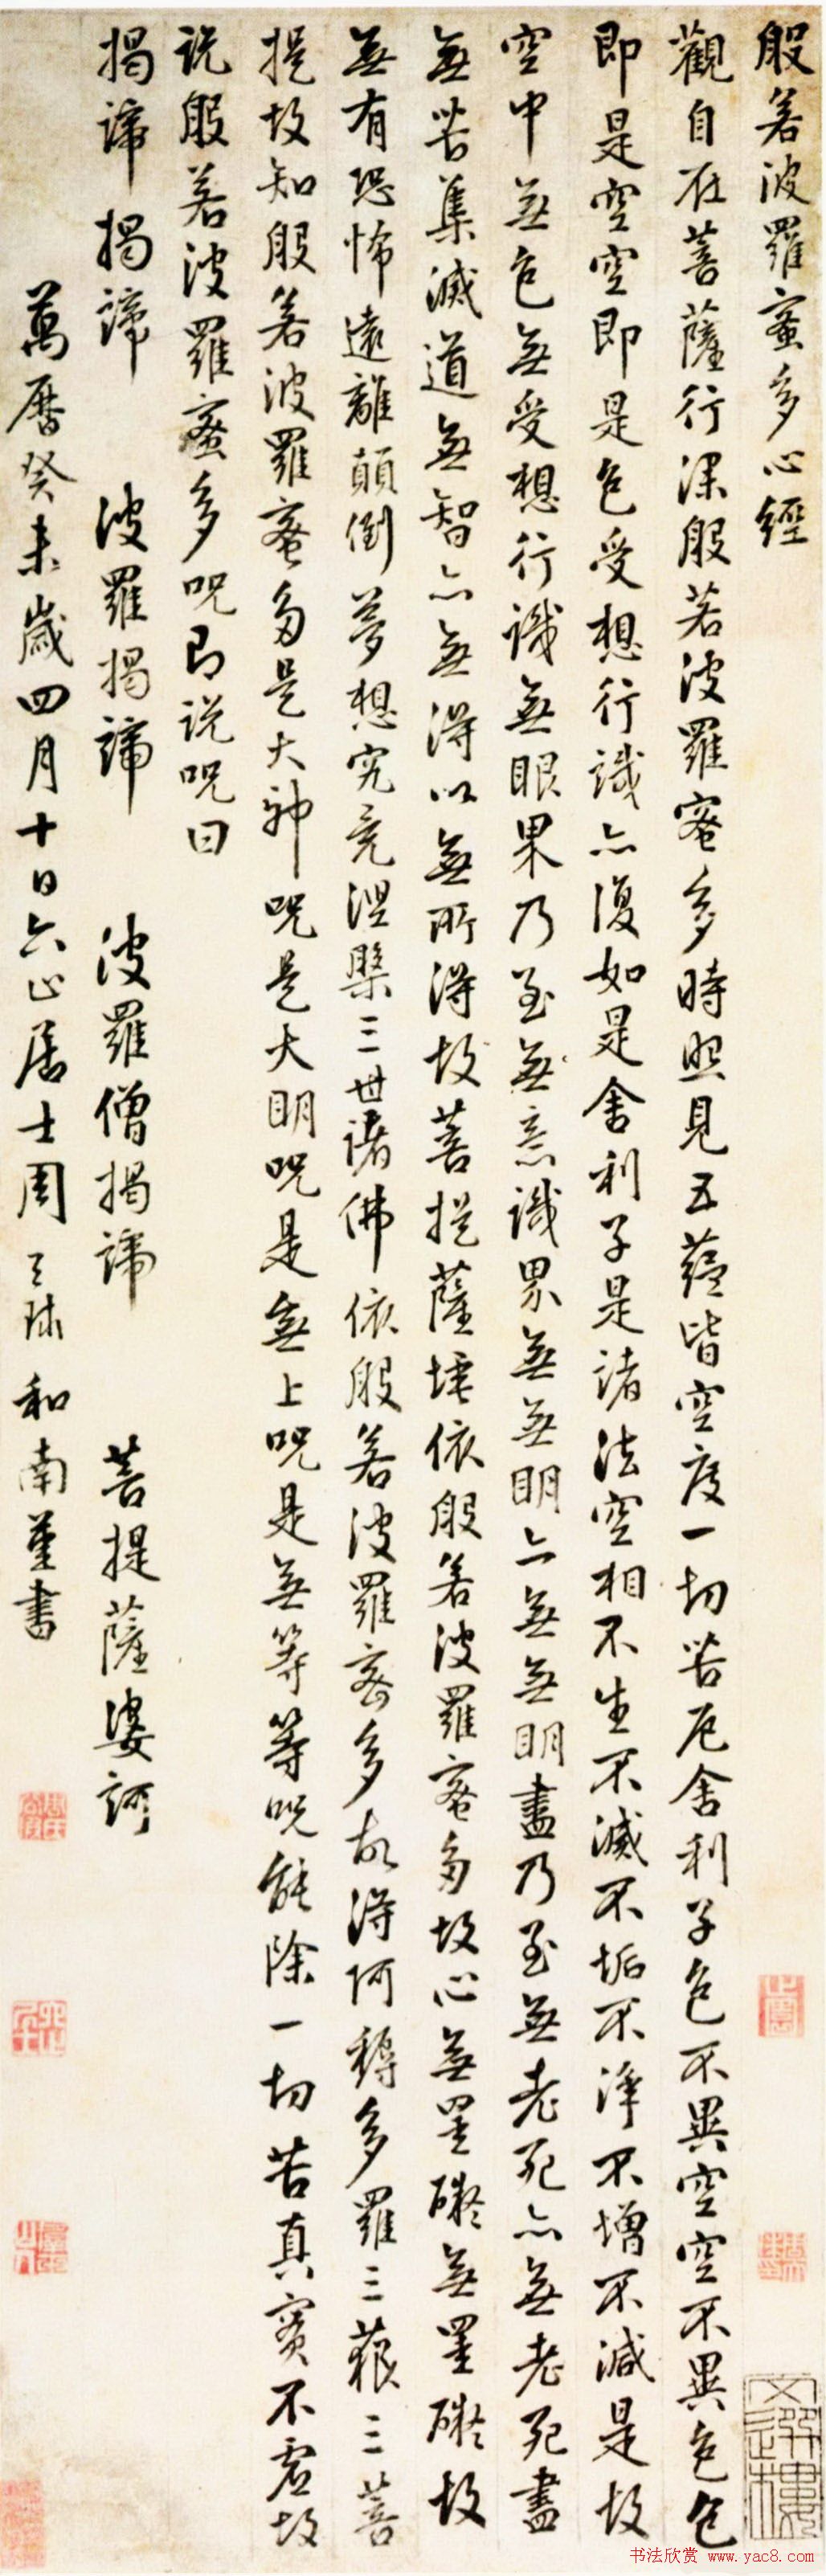 般若波羅蜜多心經
觀自在菩薩行深般若波羅蜜多時照見五蘊皆空度一切苦厄舍利子色不異空空不異色色
即是空空即是色受想行識亦復如是舍利子是諸法空相不生不滅不垢不淨不增不減是故
空中無色無受想行識無眼果乃至無意識界無無明亦無無明盡乃至無老死亦無老死盡
無苦集滅道無智亦無得以無所得故菩提薩埵依般若波羅蜜多故心無罣礙無罣礙故
無有恐怖遠離顛倒夢想究竟涅槃三世諸佛依般若波羅蜜多故得阿耨多羅三藐三菩
提故知般若波羅蜜多是大神呪是大明呪是無上呪是無等等呪能除一切苦真實不虛故
說般若波羅蜜多呪即說呪曰
揭諦 揭諦 波羅揭諦 波羅僧揭諦 菩提薩婆訶
萬曆癸未歲四月十日六止居士周天球和南書
文選樓
书法欣赏 www.yac8.com